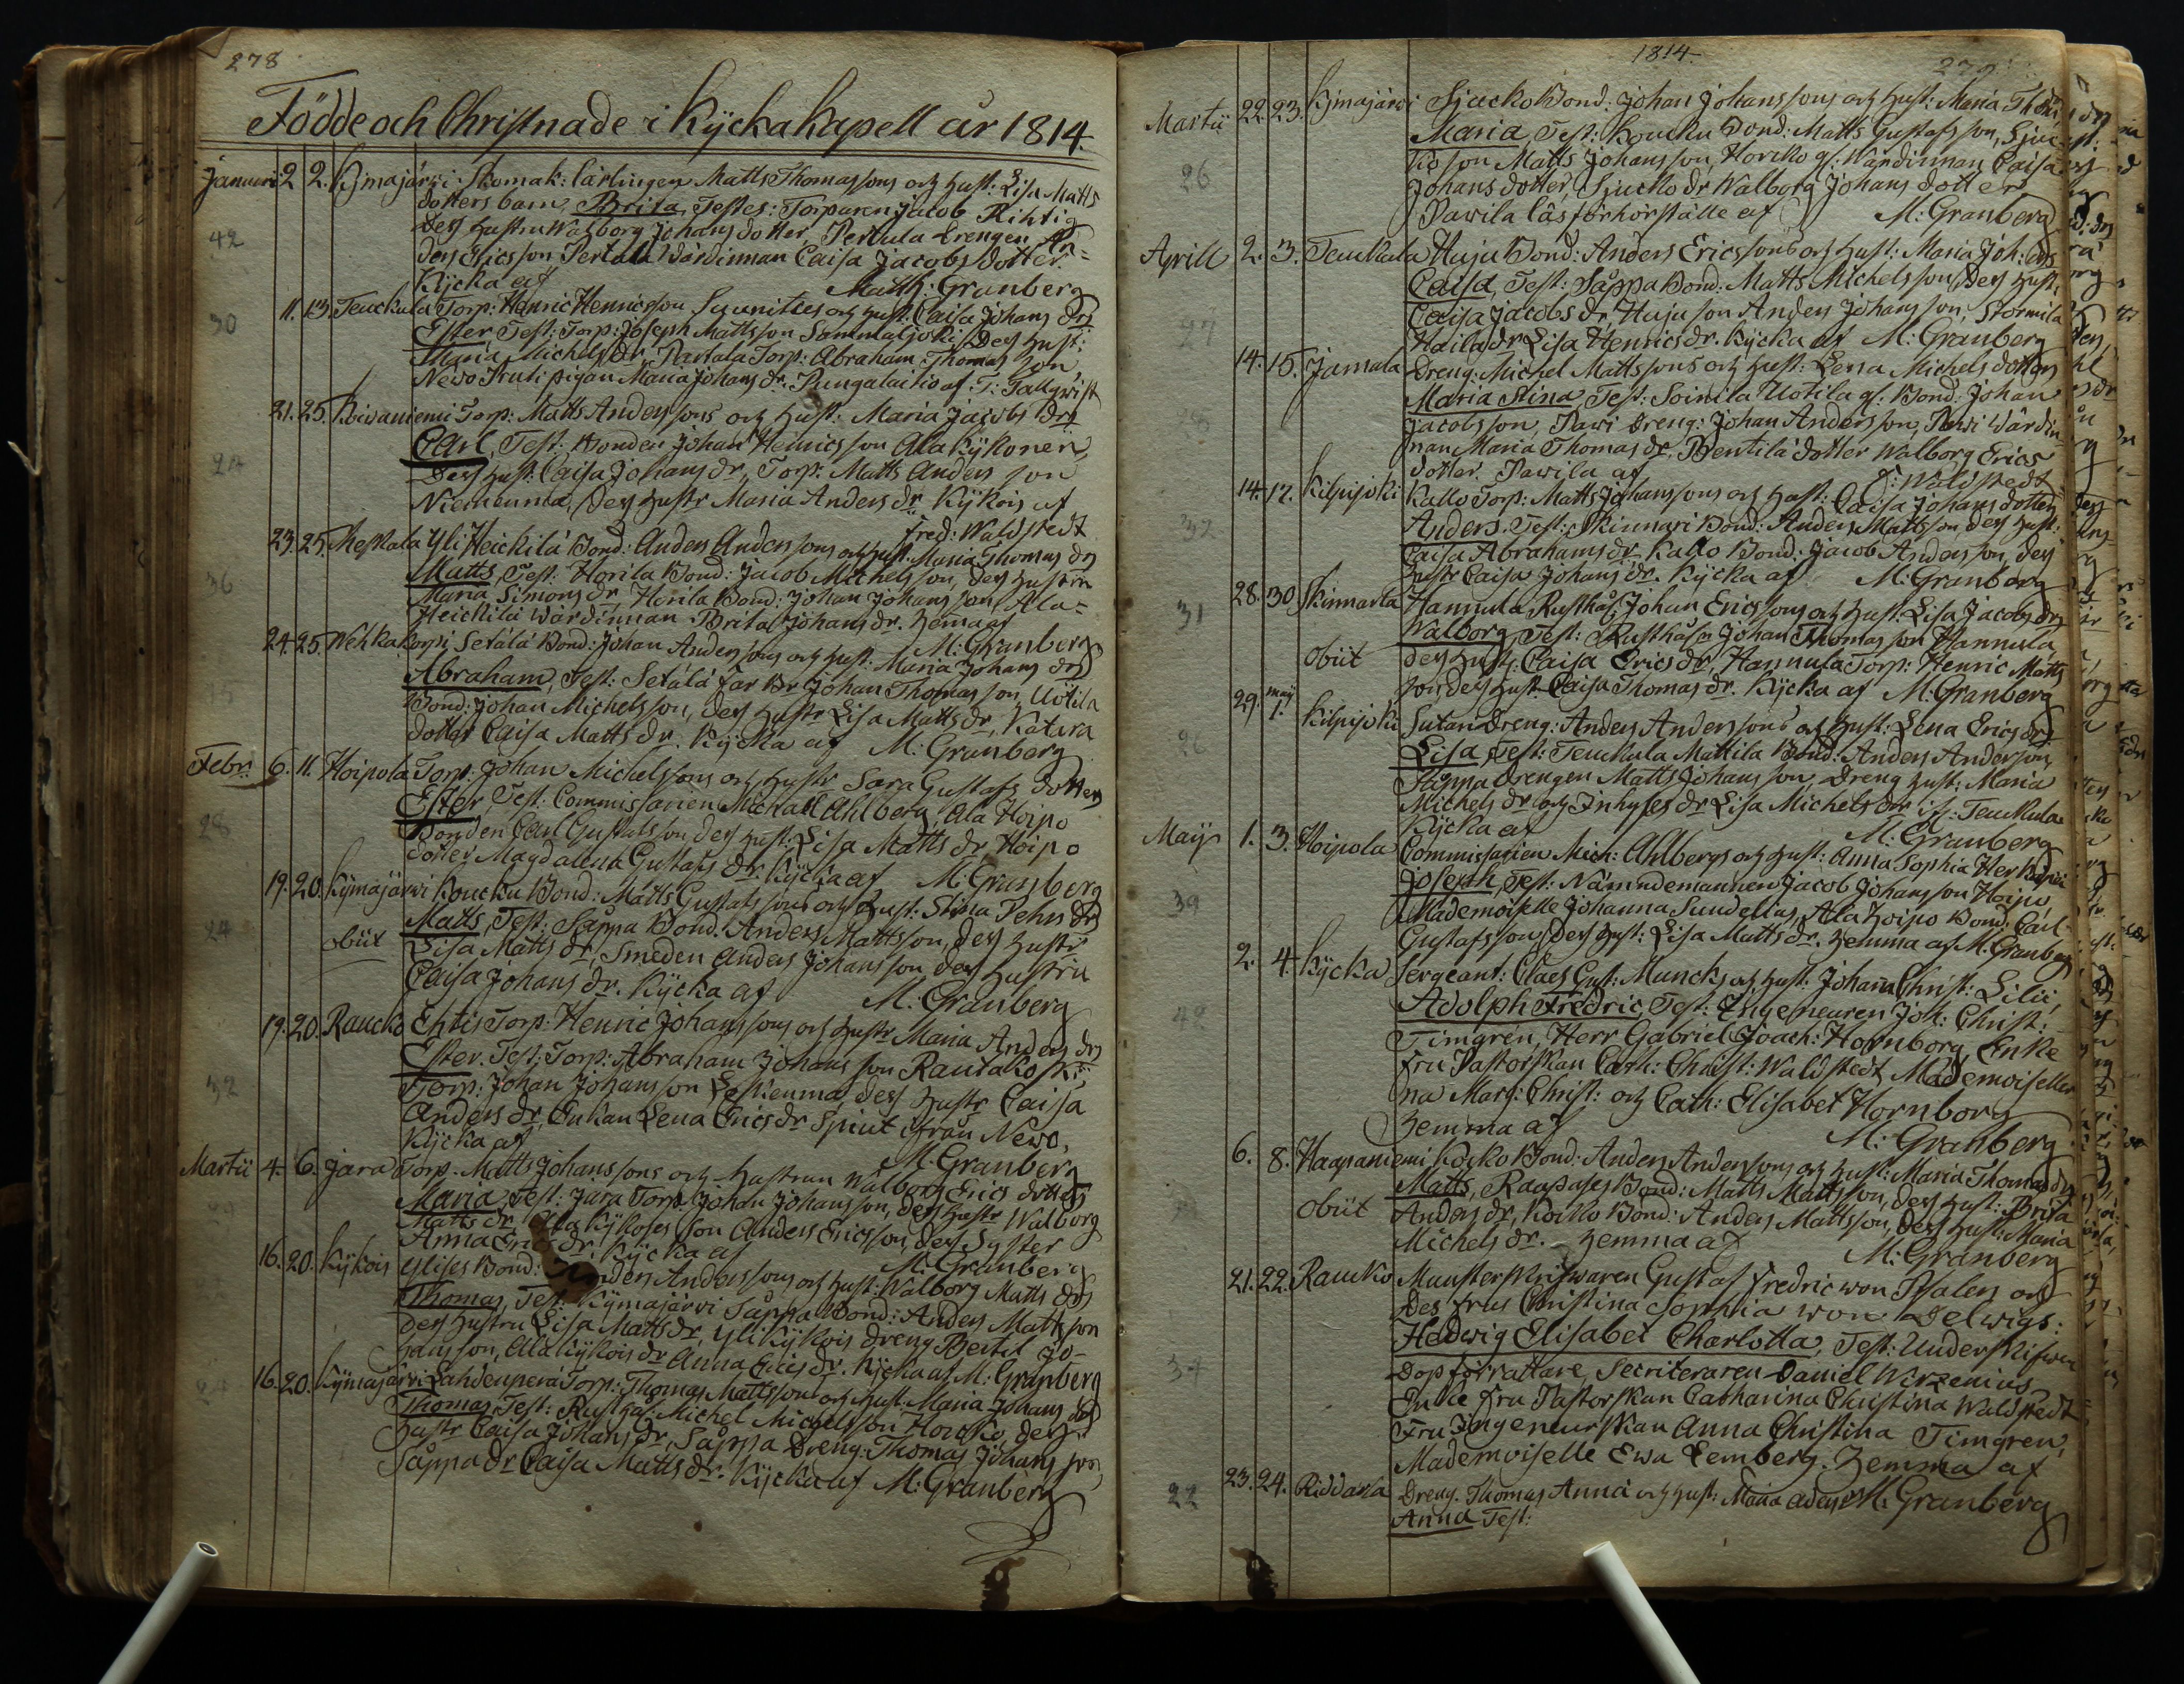 278
Födde och Christnade i Kÿcka Kapell år 1814.
Januari 2 2. Kÿmajärvi Skomak: lärlingen Matts Thomassons och Hust: Lisa Matts
dotters barn, Brita, Testes: Torparen Jacob Rihtig
42 Dess Hustru Walborg Johans dotter, Perttula Drengen An=
ders Ericsson Pertula Wärdinnan Caisa Jacobs dotter.
Kÿcka af Matth: Granberg
30 11. 13. Teuckula Torp: Henric Henricsson Suunitees och Hust: Caisa Johans drs
Ester, Test: Torp: Joseph Mattsson Sammaljoki Dess Hust:
Maria Michels dr, Pertala Torp: Abraham Thomas son,
Newo Pruti pigan Maria Johans dr. Pungalaitio af T: Tallqvist
21. 25. Koivaniemi Torp: Matts Anderssons och Hust: Maria Jacobs drs
Carl, Test: Bonden Johan Henricsson Ala Kÿkonen,
Dess Hust: Caisa Johans dr, Torp: Matts Anders son
Niemenma, Dess Hustr Maria Anders dr. Kÿkois af
Fred: Waldstedt
23. 25. Meskala Yli Heickilä Bond: Anders Anderssons och Hust: Maria Thomas drs
36 Matts, Test: Horila Bond: Jacob Michelsson, dess Hustru
Maria Simons dr, Horila Bond: Johan Johans son, Ala=
Heickilä Wärdinnan Brita Johans dr. Hema af
M: Granberg
24. 25. Wehkakorpi Setälä Bond: Johan Anderssons och Hust: Maria Johans drs
Abraham, Test: Setälä far Br Johan Thomas son, Uotila
Bond: Johan Michelsson, dess Hustr Lisa Matts dr, Katara
dotter Caisa Matts dr. Kÿcka af M: Granberg
Febr: 6. 11. Hoipola Torp: Johan Michelssons och Hustr Sara Gustafs dotters
Ester Test: Commissarien Michall Ahlberg, Ala Hoipo
28 Bonden Carl Gustafsson dess Hust: Lisa Matts dr Hoipo
dotter Magdalena Gustafs dr. Kÿcka af M: Granberg
19. 20. Kÿmajärvi Koucku Bond: Matts Gustafssons och Hust: Stina Pehrs drs
24 Matts, Test: Såppa Bond: Anders Mattsson, Dess Hustr
obiit Lisa Matts dr, Smeden Anders Johansson dess Hustru
Caisa Johans dr. Kÿcka af M: Granberg
19. 20. Raucko Ehtis Torp: Henric Johanssons och Hustr Maria Anders drs
Ester. Test: Torp: Abraham Johans son Rautakoski,
32 Torp: Johan Johansson Leskenma dess Hustr Caisa
Anders dr, Enkan Lena Erics dr Spiut ifrån Newo,
Kÿcka af M. Granberg
Martii 4. 6. Jara Torp. Matts Johanssons och Hustrun Walborg Erics dotters
Maria, Test: Jara Torp. Johan Johansson, dess Hustr Walborg
Matts dr, Ala Kÿkoses son Anders Ericsson, dess Syster
Anna Erics dr. Kÿcka af M: Granberg
16. 20. Kÿkois Ylises Bond: Anders Anderssons och Hust: Walborg Matts drs
Thomas, Test: Kÿmajärvi Såppa Bond: Anders Mattsson
dess Hustru Lisa Matts dr, Yli Kÿkois dreng Bertil Jo-
hansson, Ala Kÿkois dr Anna Erics dr. Kÿcka af M: Granberg
16. 20. Kÿmajärvi Lahdenperä Torp: Thomas Mattssons och Hust: Maria Johans drs
Thomas, Test: Rusthål: Michel Michelsson Horcko, dess
Hustr Caisa Johans dr, Såppa Dreng: Thomas Johans son,
Såppa dr Caisa Matts dr. Kÿcka af M: Granberg
1814.
279
Martii 22. 23. Kÿmajärvi Sjucko Bond: Johan Johanssons och Hust: Maria
Maria, Test: Koucku Bond: Matts Gustafsson, Sjuc-
26 ko son Matts Johansson, Horcko gl: Wärdinnan Caisa
Johans dotter, Sjucko dr Walborg Johans dotter
Pawila läsförhörställe af M: Granberg
Aprill 2. 3. Teuckula Huju Bond: Anders Ericssons och Hust: Maria Joh: drs
Caisa, Test: Såppa Bond: Matts Michelsson, Dess Hust:
27 Caisa Jacobs dr, Huju son Anders Johansson, Stormila
Haila dr Lisa Henrics dr. Kÿcka af M: Granberg
14. 15. Jamala Dreng: Michel Mattssons och Hust: Lena Michels dotters
Maria Stina, Test: Soinila Uotila gl: Bond: Johan
28 Jacobsson, Pawi Dreng: Johan Andersson, Pawi Wärdin-
nan Maria Thomas dr, Pentilä dotter Walborg Erics
dotter. Pawila af F: Waldstedt
14. 17. Kilpijoki Kallo Torp: Matts Johanssons och Hust: Caisa Johans dotters
37 Anders. Test: Skinnari Bond: Anders Mattsson, dess Hust:
Caisa Abrahams dr, Kallo Bond: Jacob Andersson, dess
Hustr Caisa Johans dr. Kÿcka af M: Granberg
28. 30 Skinnarla Hannula Rusthål: Johan Ericssons och Hust: Lisa Jacobs drs
31 Walborg, Test: Rusthåln Johan Thomasson Hannula
obiit dess Hust: Caisa Erics dr, Hannula Torp: Henric Matts
son, dess Hust: Caisa Thomas dr. Kÿcka af M: Granberg
29. maÿ 1. Kilpijoki Sutari Dreng: Anders Anderssons och Hust: Lena Erics drs
26 Lisa, Test: Teuckula Mattila Bond: Anders Andersson,
Såppa drengen Matts Johansson, Dreng Hust: Maria
Michels dr och Inhÿses dr Lisa Michels dr if: Teuckula
Kÿcka af M: Granberg
Maÿ 1. 3. Hoipola Commissarien Mich: Ahlbergs och Hust: Anna Sophia
39 Joseph, Test: Nämndemannen Jacob Johansson Hoipo,
Mademoiselle Johanna Sundelius, Ala Hoipo Bond: Carl
Gustafsson, Dess Hust: Lisa Matts dr. Hemma af M: Granberg
2. 4. Kÿcka Sergeant: Claes Gust: Muncks och Hust: Johan Christ: Lilii,
Adolph Fredric, Test: Ingeneuren Joh: Christ:
42 Timgren, Herr Gabriel Joach: Hornborg, Enke
Fru Pastorskan Cath: Christ: Waldstedt, Mademoiseller
na Marg: Christ: och Cath: Elisabet Hornborg
Hemma af M: Granberg
6. 8. Haapaniemi Kocko Bond: Anders Anderssons och Hust: Maria Thomas drs
Matts, Raapases Bond: Matts Mattsson, Dess Hust: Brita
obiit Anders dr, Kocko Bond: Anders Mattsson, Dess Hust: Maria
Michels dr. Hemma af M: Granberg
21. 22. Raucko Munsterskrifwaren Gustaf Fredric won Thalen och
Des frus Christina Sophia won Delwigs:
Hedwig Elisabet Charlotta, Test: Underskrifwen
34 Dopförrattare, Secriteraren Daniel Wirzenius,
Enke fru Pastorskan Catharina Christina Waldstedt
Fru Ingeneurskan Anna Christina Timgren,
Mademoiselle Ewa Lemberg. Hemma af
M: Granberg
22 23. 24. Riddara Dreng. Thomas Anna och Hust: Maria
Anna Test: